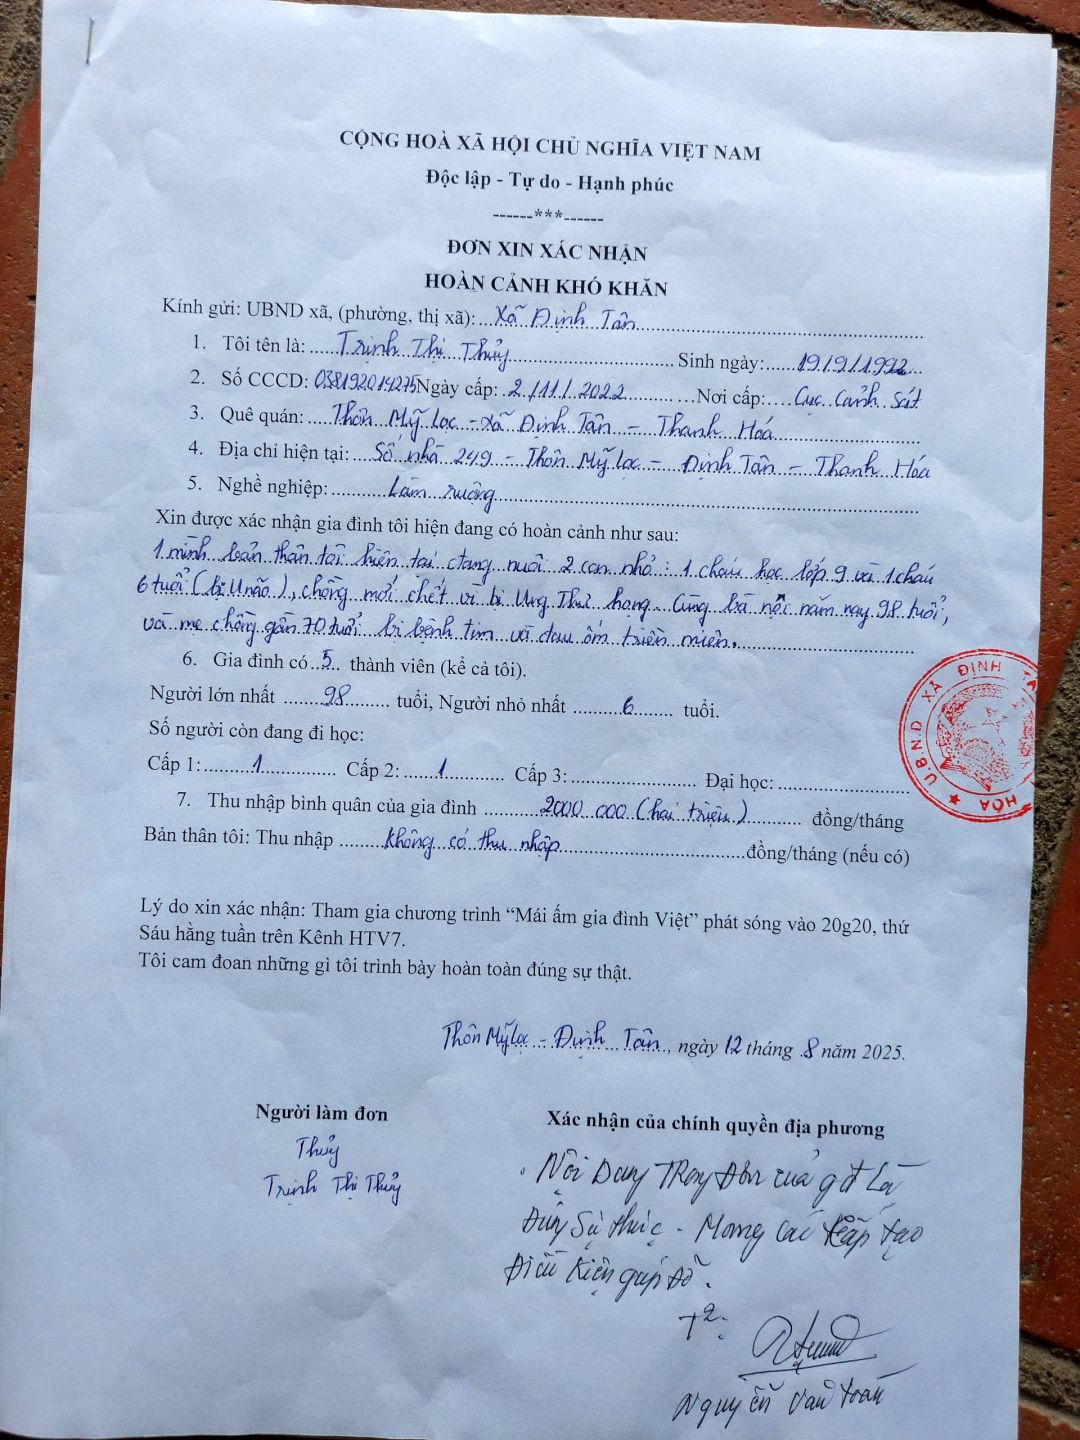 CỘNG HOÀ XÃ HỘI CHỦ NGHĨA VIỆT NAM
Độc lập - Tự do - Hạnh phúc
------***------
ĐƠN XIN XÁC NHẬN
HOÀN CẢNH KHÓ KHĂN
Kính gửi: UBND xã, (phường, thị xã): Xã Định Tân
1. Tôi tên là: Trịnh Thị Thủy Sinh ngày: 19/9/1992
2. Số CCCD: 038192014275 Ngày cấp: 2/11/2022 Nơi cấp: Cục Cảnh sát
3. Quê quán: Thôn Mỹ Lộc - Xã Định Tân - Thanh Hoá
4. Địa chỉ hiện tại: Số nhà 249 - Thôn Mỹ Lộc - Định Tân - Thanh Hóa
5. Nghề nghiệp: Làm ruộng
Xin được xác nhận gia đình tôi hiện đang có hoàn cảnh như sau:
1 mình bản thân tôi hiện tại đang nuôi 2 con nhỏ : 1 cháu học lớp 9 và 1 cháu
6 tuổi (bị U não), chồng mới chết vì bị Ung Thư họng. Cùng bà nội năm nay 98 tuổi,
và mẹ chồng gần 70 tuổi bị bệnh tim và đau ốm triền miên.
6. Gia đình có 5 thành viên (kể cả tôi).
Người lớn nhất 98 tuổi, Người nhỏ nhất 6 tuổi.
Số người còn đang đi học:
Cấp 1: 1 Cấp 2: 1 Cấp 3: Đại học:
7. Thu nhập bình quân của gia đình 2000 000 (hai triệu) đồng/tháng
Bản thân tôi: Thu nhập Không có thu nhập đồng/tháng (nếu có)
U.B.N.D XÃ ĐỊNH TÂ
HÓA
Lý do xin xác nhận: Tham gia chương trình “Mái ấm gia đình Việt” phát sóng vào 20g20, thứ
Sáu hằng tuần trên Kênh HTV7.
Tôi cam đoan những gì tôi trình bày hoàn toàn đúng sự thật.
Thôn Mỹ Lộc - Định Tân, ngày 12 tháng 8 năm 2025.
Người làm đơn
Thủy
Trịnh Thị Thủy
Xác nhận của chính quyền địa phương
Nội Dung Trong Đơn của gđ Là
Đúng Sự thực - Mong các cấp tạo
Điều Kiện giúp đỡ.
Nguyễn Văn Toán